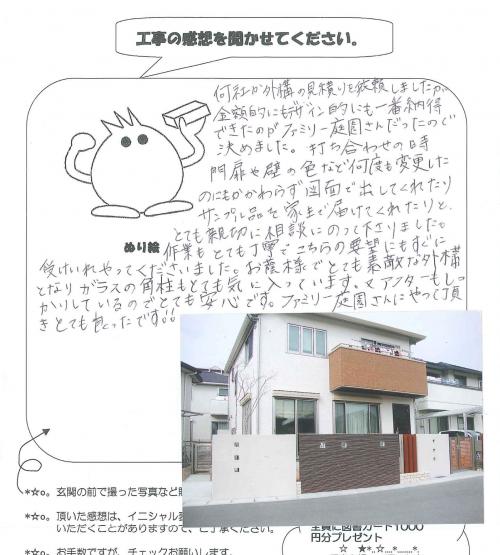 工事の感想を聞かせてください。
何社か外構の見積りを依頼しましたが、
金額的にもデザイン的にも一番納得
できたのがファミリー庭園さんだったので
決めました。打ち合わせの時
門扉や壁の色など何度も変更した
のにもかかわらず図面で出してくれたり
サンプル品を家まで届けてくれたりと、
とても親切に相談にのって下さりました。
ぬり絵
作業もとても丁寧でこちらの要望にもすぐに
受けいれやってくださいました。お蔭様でとても素敵な外構
となりガラスの角柱もとても気に入っています。又アフターもしっ
かりしているのでとても安心です。ファミリー庭園さんにやって頂
きとても良かったです!!
*☆。玄関の前で撮った写真など
*☆。頂いた感想は、イニシャル
いただくことがありますので、ご了承ください。
*☆。お手数ですが、チェックお願いします。
全員に図書カード1000
円分プレゼント